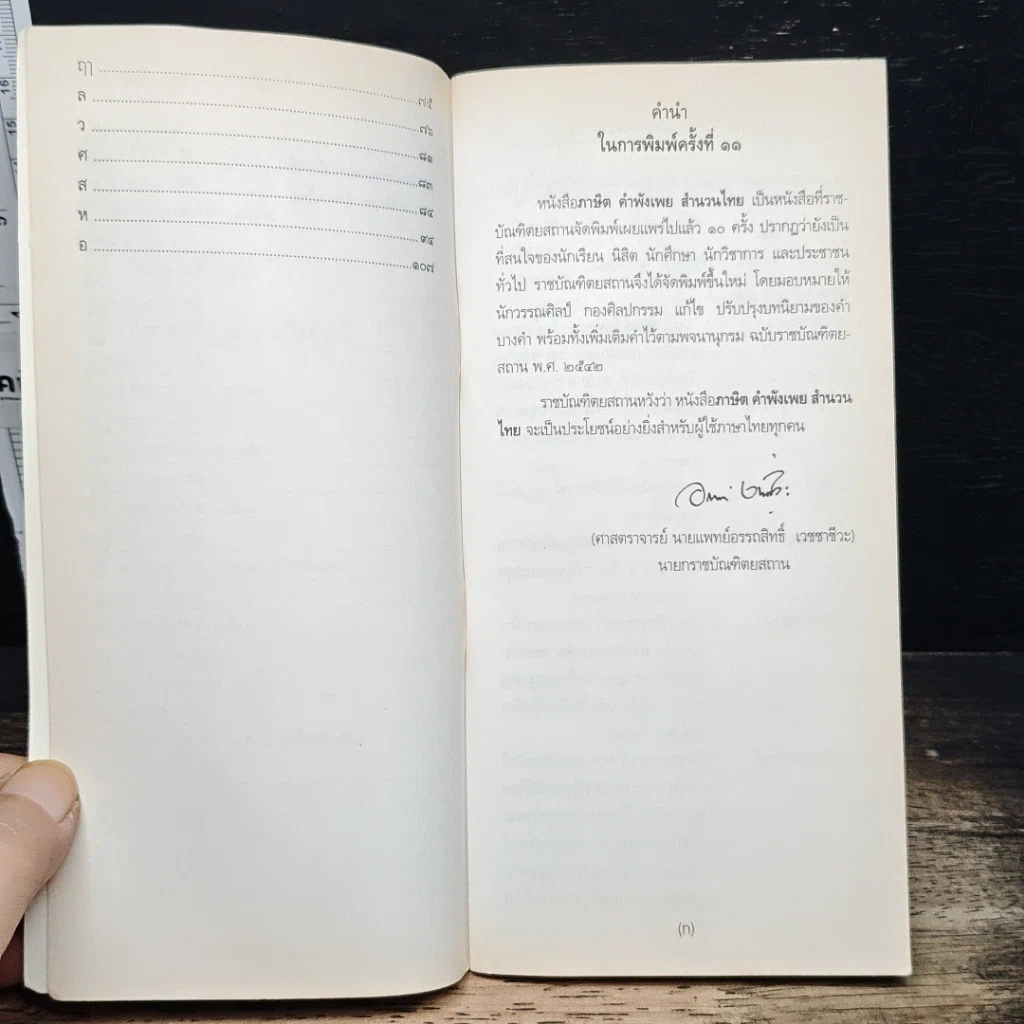 ฤๅ ........ ๗๕
ล ........ ๗๖
ว ........ ๘๑
ศ ........ ๘๓
ส ........ ๘๔
ห ........ ๙๔
อ ........ ๑๐๗
คำนำ
ในการพิมพ์ครั้งที่ ๑๑
หนังสือภาษิต คำพังเพย สำนวนไทย เป็นหนังสือที่ราช-
บัณฑิตยสถานจัดพิมพ์เผยแพร่ไปแล้ว ๑๐ ครั้ง ปรากฏว่ายังเป็น
ที่สนใจของนักเรียน นิสิต นักศึกษา นักวิชาการ และประชาชน
ทั่วไป ราชบัณฑิตยสถานจึงได้จัดพิมพ์ขึ้นใหม่ โดยมอบหมายให้
นักวรรณศิลป์ กองศิลปกรรม แก้ไข ปรับปรุงบทนิยามของคำ
บางคำ พร้อมทั้งเพิ่มเติมคำไว้ตามพจนานุกรม ฉบับราชบัณฑิตย-
สถาน พ.ศ. ๒๕๔๒
ราชบัณฑิตยสถานหวังว่า หนังสือภาษิต คำพังเพย สำนวน
ไทย จะเป็นประโยชน์อย่างยิ่งสำหรับผู้ใช้ภาษาไทยทุกคน
(ศาสตราจารย์ นายแพทย์อรรถสิทธิ์ เวชชาชีวะ)
นายกราชบัณฑิตยสถาน
(ก)